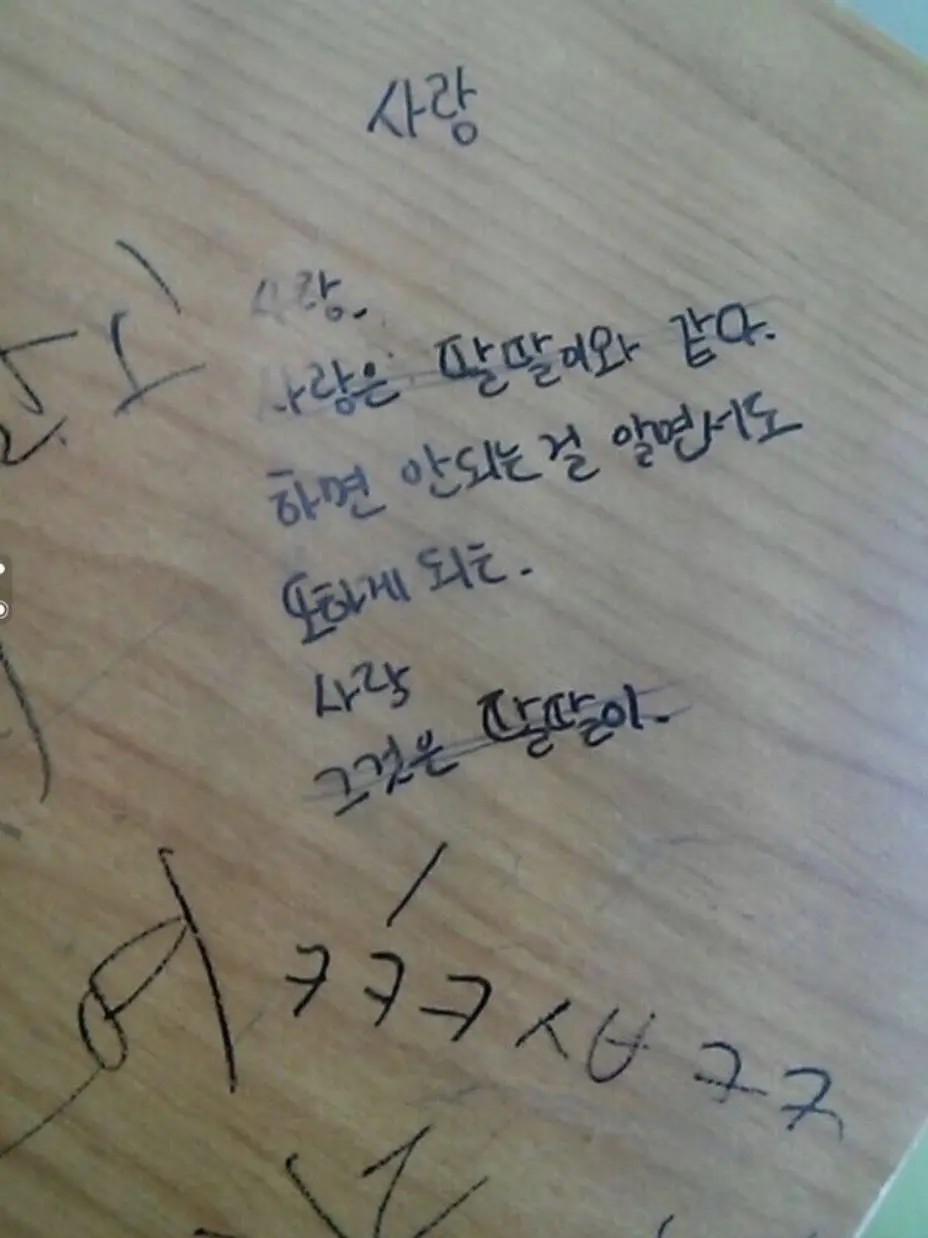 사랑
사랑.
사랑은 딸딸이와 같다.
하면 안되는걸 알면서도
또하게 되는.
사랑
그것은 딸딸이.
ㅋㅋㅋㅅㅂㅋㅋ